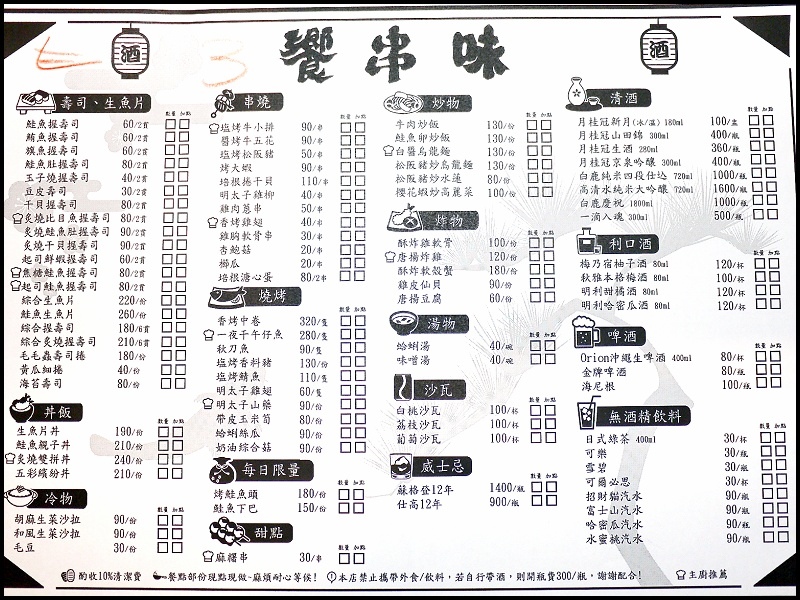 酒
饗串味
酒
壽司、生魚片
數量 加點
鮭魚握壽司 60/2貫
鮪魚握壽司 60/2貫
旗魚握壽司 60/2貫
鮭魚肚握壽司 80/2貫
玉子燒握壽司 40/2貫
豆皮壽司 30/2貫
干貝握壽司 80/2貫
炙燒比目魚握壽司 80/2貫
炙燒鮭魚肚握壽司 90/2貫
炙燒干貝握壽司 90/2貫
起司鮮蝦握壽司 60/2貫
焦糖鮭魚握壽司 80/2貫
起司鮭魚握壽司 80/2貫
綜合生魚片 220/份
鮭魚生魚片 260/份
綜合握壽司 180/6貫
綜合炙燒握壽司 210/6貫
毛毛蟲壽司捲 180/份
黃瓜細捲 40/份
海苔壽司 80/份
丼飯
數量 加點
生魚片丼 190/份
鮭魚親子丼 210/份
炙燒雙拼丼 240/份
五彩繽紛丼 210/份
冷物
數量 加點
胡麻生菜沙拉 90/份
和風生菜沙拉 90/份
毛豆 30/份
串燒
數量 加點
塩烤牛小排 90/串
醬烤牛五花 90/串
塩烤松阪豬 50/串
烤大蝦 90/串
培根捲干貝 110/串
明太子雞柳 40/串
雞肉蔥串 50/串
香烤雞翅 40/串
雞胸軟骨串 30/串
杏鮑菇 20/串
櫛瓜 20/串
培根溏心蛋 80/2串
燒烤
數量 加點
香烤中卷 320/隻
一夜干午仔魚 280/隻
秋刀魚 90/隻
塩烤香料豬 130/份
塩烤鯖魚 110/隻
明太子雞翅 60/隻
明太子山藥 90/份
帶皮玉米筍 80/份
蛤蜊絲瓜 90/份
奶油綜合菇 90/份
每日限量
數量 加點
烤鮭魚頭 180/份
鮭魚下巴 150/份
甜點
數量 加點
麻糬串 30/串
炒物
數量 加點
牛肉炒飯 130/份
鮭魚卵炒飯 130/份
白醬烏龍麵 130/份
松阪豬炒烏龍麵 130/份
松阪豬炒水蓮 80/份
櫻花蝦炒高麗菜 100/份
炸物
數量 加點
酥炸雞軟骨 100/份
唐揚炸雞 120/份
酥炸軟殼蟹 180/份
雞皮仙貝 90/份
唐揚豆腐 60/份
湯物
數量 加點
蛤蜊湯 40/碗
味噌湯 40/碗
沙瓦
數量 加點
白桃沙瓦 100/杯
荔枝沙瓦 100/杯
葡萄沙瓦 100/杯
威士忌
數量 加點
蘇格登12年 1400/瓶
仕高12年 900/瓶
清酒
數量 加點
月桂冠新月(冰/溫) 180ml 100/盅
月桂冠山田錦 300ml 400/瓶
月桂冠生酒 280ml 360/瓶
月桂冠京泉吟釀 300ml 400/瓶
白鹿純米四段仕込 720ml 1000/瓶
高清水純米大吟釀 720ml 1600/瓶
白鹿慶祝 1800ml 1000/瓶
一滴入魂 300ml 500/瓶
利口酒
數量 加點
梅乃宿柚子酒 80ml 120/杯
秋雅本格梅酒 80ml 100/杯
明利甜橘酒 80ml 120/杯
明利哈密瓜酒 80ml 120/杯
啤酒
數量 加點
Orion沖繩生啤酒 400ml 80/杯
金牌啤酒 80/瓶
海尼根 100/瓶
無酒精飲料
數量 加點
日式綠茶 400ml 30/杯
可樂 30/瓶
雪碧 30/瓶
可爾必思 30/杯
招財貓汽水 90/瓶
富士山汽水 90/瓶
哈密瓜汽水 90/瓶
水蜜桃汽水 90/瓶
酌收10%清潔費 餐點部份現點現做~麻煩耐心等候! 本店禁止攜帶外食/飲料，若自行帶酒，則開瓶費300/瓶，謝謝配合! 主廚推薦